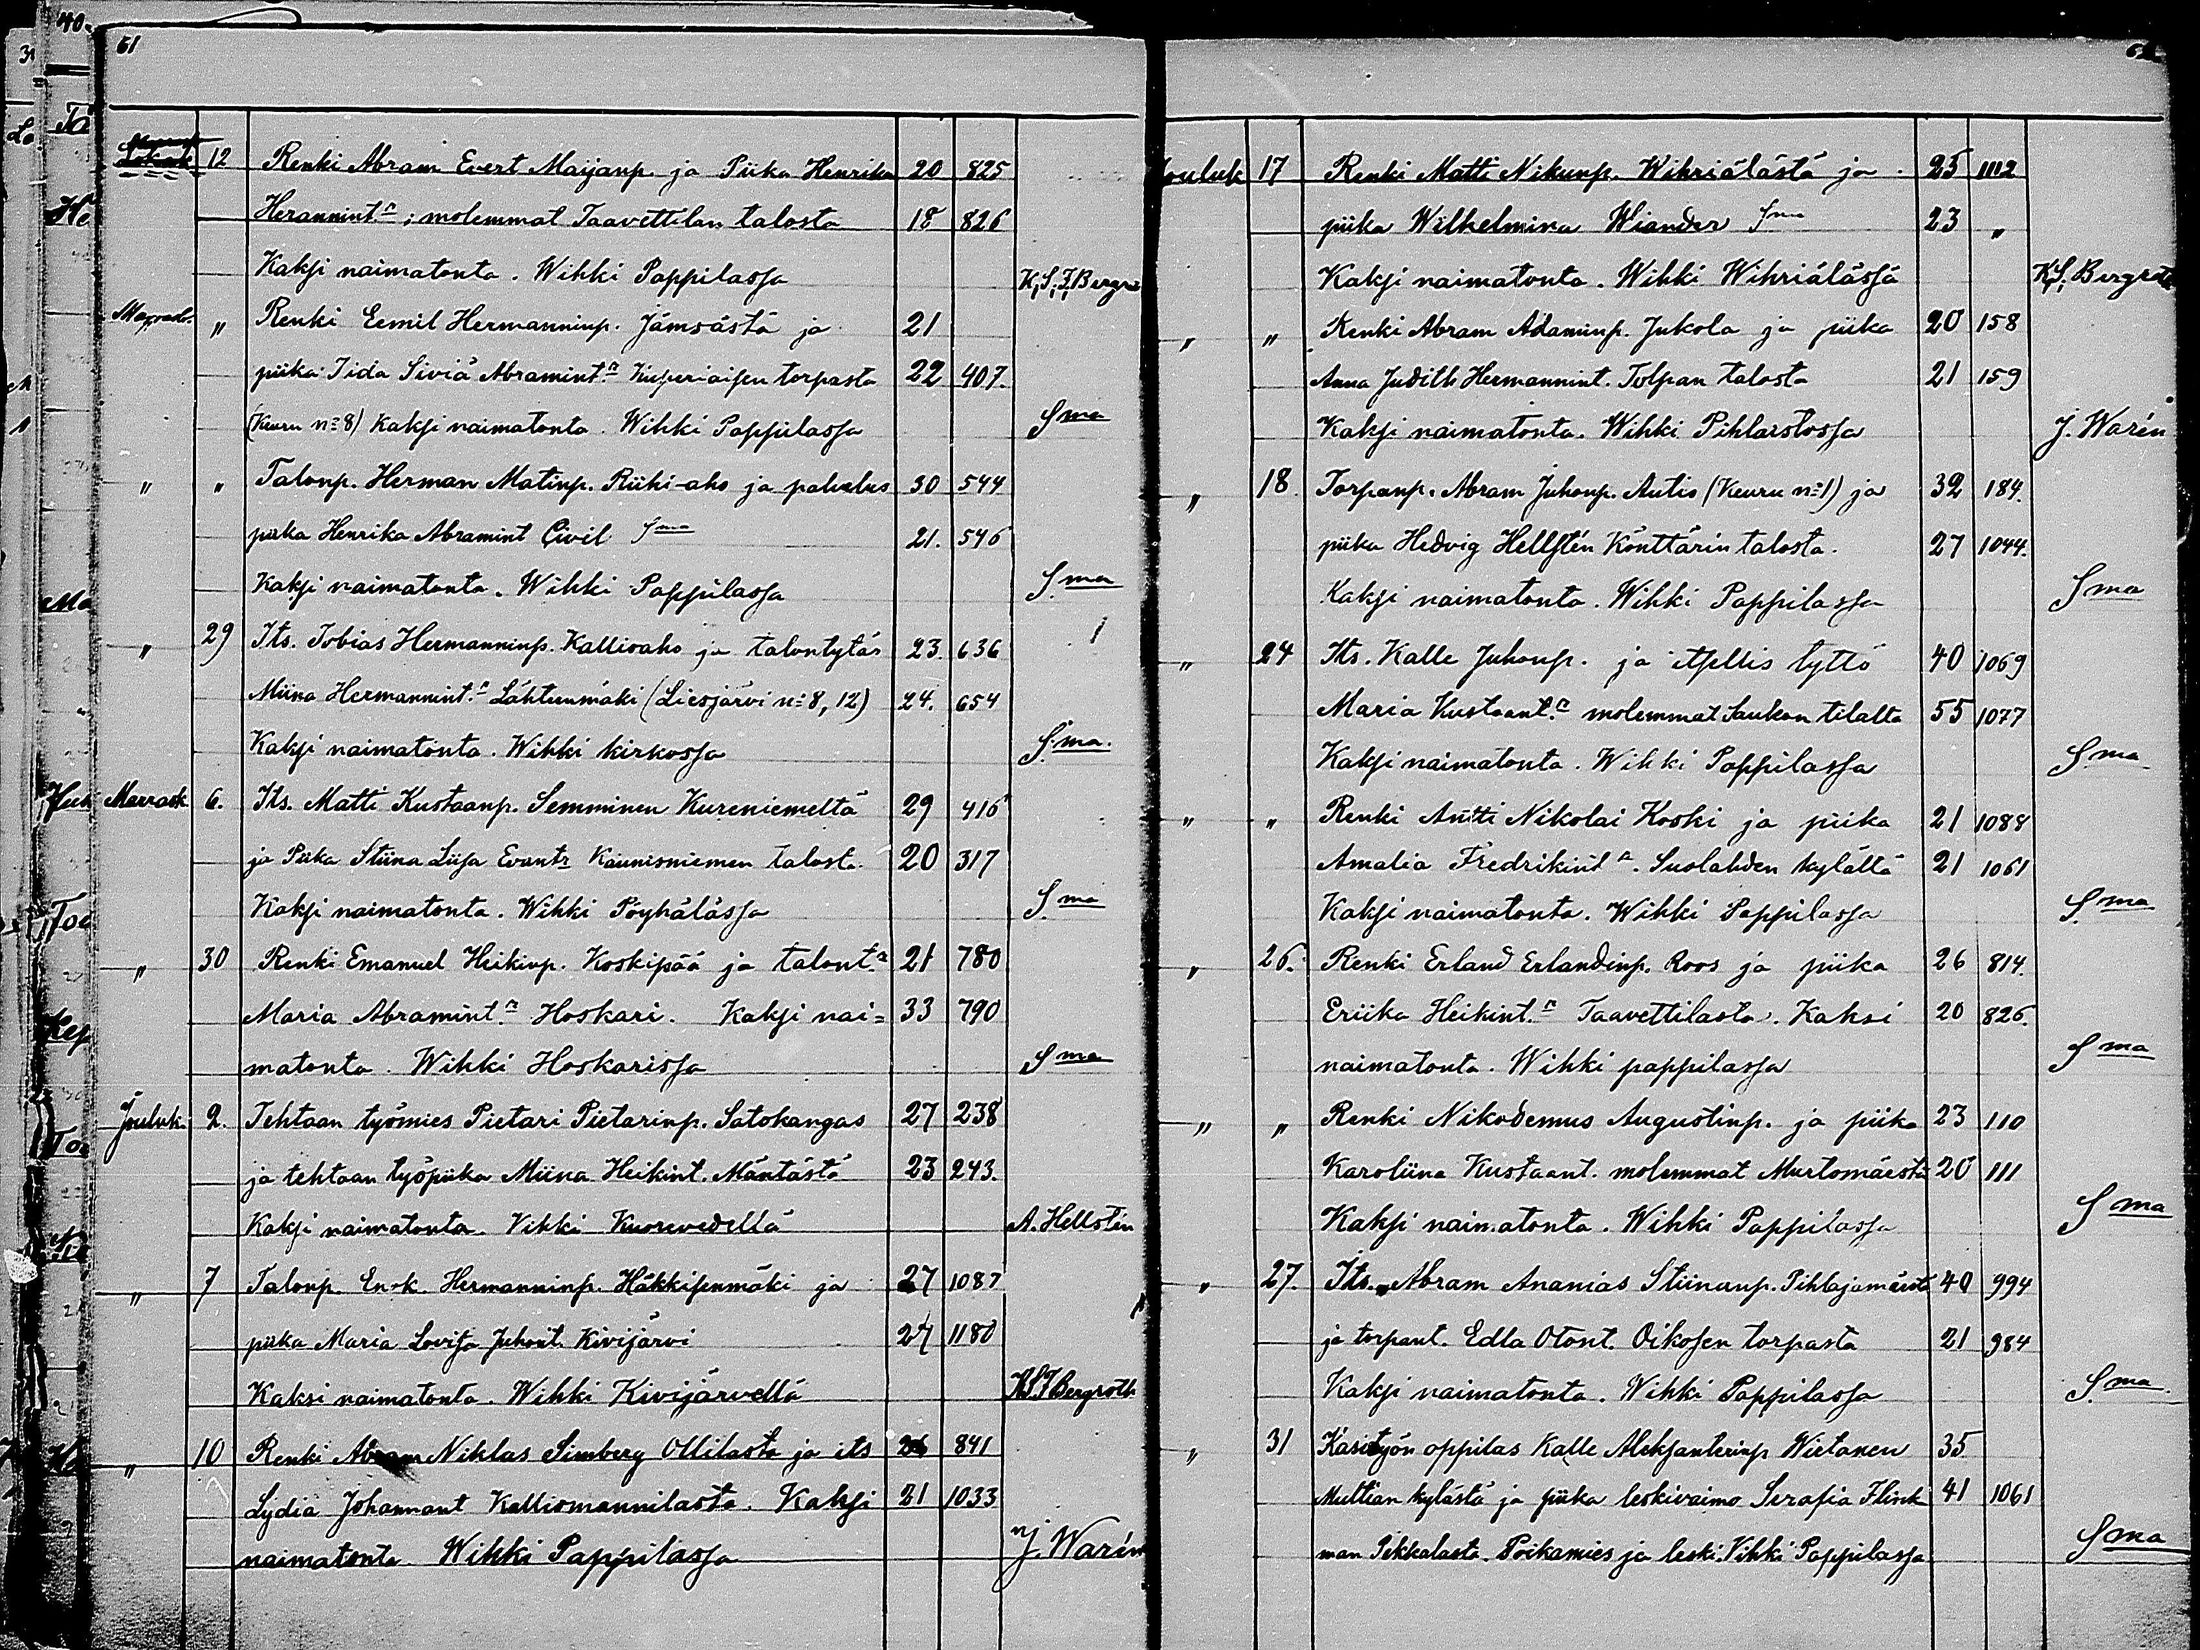 61
Lokak 12 Renki Abram Evert Maijanp. ja Piika Henrika 20 825
Herannint.r; molemmat Taavettilan talosta 18 826
Kaksi naimatonta. Wihki Pappilassa K,S,F,Bergro
Marrask. " Renki Eemil Hermanninp. Jämsästä ja 21
piika Iida Siviä Abramint.r torpasta 22 407.
(Keuru n=8) Kaksi naimatonta. Wihki Pappilassa Sma
" " Talonp. Herman Matinp. Riihi-aho ja palvelus 30 544
piika Henrika Abramint Civil Sma 21. 546
Kaksi naimatonta. Wihki Pappilassa Sma
" 29 Its. Tobias Hermanninp. Kallioaho ja talontytär 23. 636
Miina Hermannint.r Lähteenmäki (Liesjärvi n=8, 12) 24. 654
Kaksi naimatonta. Wihki kirkossa S.ma.
Marrask 6. Its. Matti Kustaanp. Semminen Kureniemeltä 29 416
ja Piika Stiina Liisa Evantr Kaunisniemen talost. 20 317
Kaksi naimatonta. Wihki Pöyhälässä S.ma
" 30 Renki Emanuel Heikinp. Koskipää ja talont.r 21 780
Maria Abramint.r Hoskari. Kaksi nai= 33 790
matonta. Wihki Hoskarissa Sma
Jouluk. 2. Tehtaan työmies Pietari Pietarinp. Satokangas 27 238
ja tehtaan työpiika Miina Heikint. Mäntästä 23 243.
Kaksi naimatonta. Vihki Kuorevedellä A. Hellstén
" 7 Talonp. Enok. Hermanninp. Häkkisenmäki ja 27 1087
piika Maria Lovisa Juhont. Kivijärvi 27 1180
Kaksi naimatonta. Wihki Kivijärvellä KSFBergroth
" 10 Renki Abram Niklas Simberg Ollilasta ja its 841
Lydia Johannant Kalliomannilasta. Kaksi 21 1033
naimatonta. Wihki Pappilassa J. Warén
62
Jouluk 17 Renki Matti Nikunp. Wihriälästä ja 25 1112
piika Wilhelmina Wiander Sma 23 "
Kaksi naimatonta. Wihki Wihriälässä K,S, Bergroth
" " Renki Abram Adaminp. Jukola ja piika 20 158
Anna Judith Hermannint. Tolpan talosta 21 159
Kaksi naimatonta. Wihki Pihlaistossa J. Warén
" 18. Torpanp. Abram Juhonp. Autio (Keuru n=1) ja 32 184.
piika Hedvig Hellstén Könttärin talosta. 27 1044.
Kaksi naimatonta. Wihki Pappilassa Sma
" 24 Its. Kalle Juhonp. ja itsellis tyttö 40 1069
Maria Kustaant.r molemmat Saukon tilalta 55 1077
Kaksi naimatonta. Wihki Pappilassa Sma
" " Renki Antti Nikolai Koski ja piika 21 1088
Amalia Fredrikint r. Suolahden kylältä 21 1061
Kaksi naimatonta. Wihki Pappilassa S.ma
" 26. Renki Erland Erlandinp. Roos ja piika 26 814.
Eriika Heikint.r Taavettilasta. Kaksi 20 826.
naimatonta. Wihki pappilassa Sma
" " Renki Nikodemus Augustinp. ja piika 23 110
Karoliina Kustaant. molemmat Murtomäestä 20 111
Kaksi naimatonta. Wihki Pappilassa Sma
" 27. Its. Abram Ananias Stiinanp. Pihlajamäestä 40 994
ja torpant. Edla Otont. Oikosen torpasta 21 984
Kaksi naimatonta. Wihki Pappilassa S.ma.
" 31 Käsityön oppilas Kalle Aleksanterinp Wietanen 35
Multian kylästä ja piika leskivaimo Serafia Flink 41 1061
man Pekkalasta. Poikamies ja leski. Vihki Pappilassa Sma